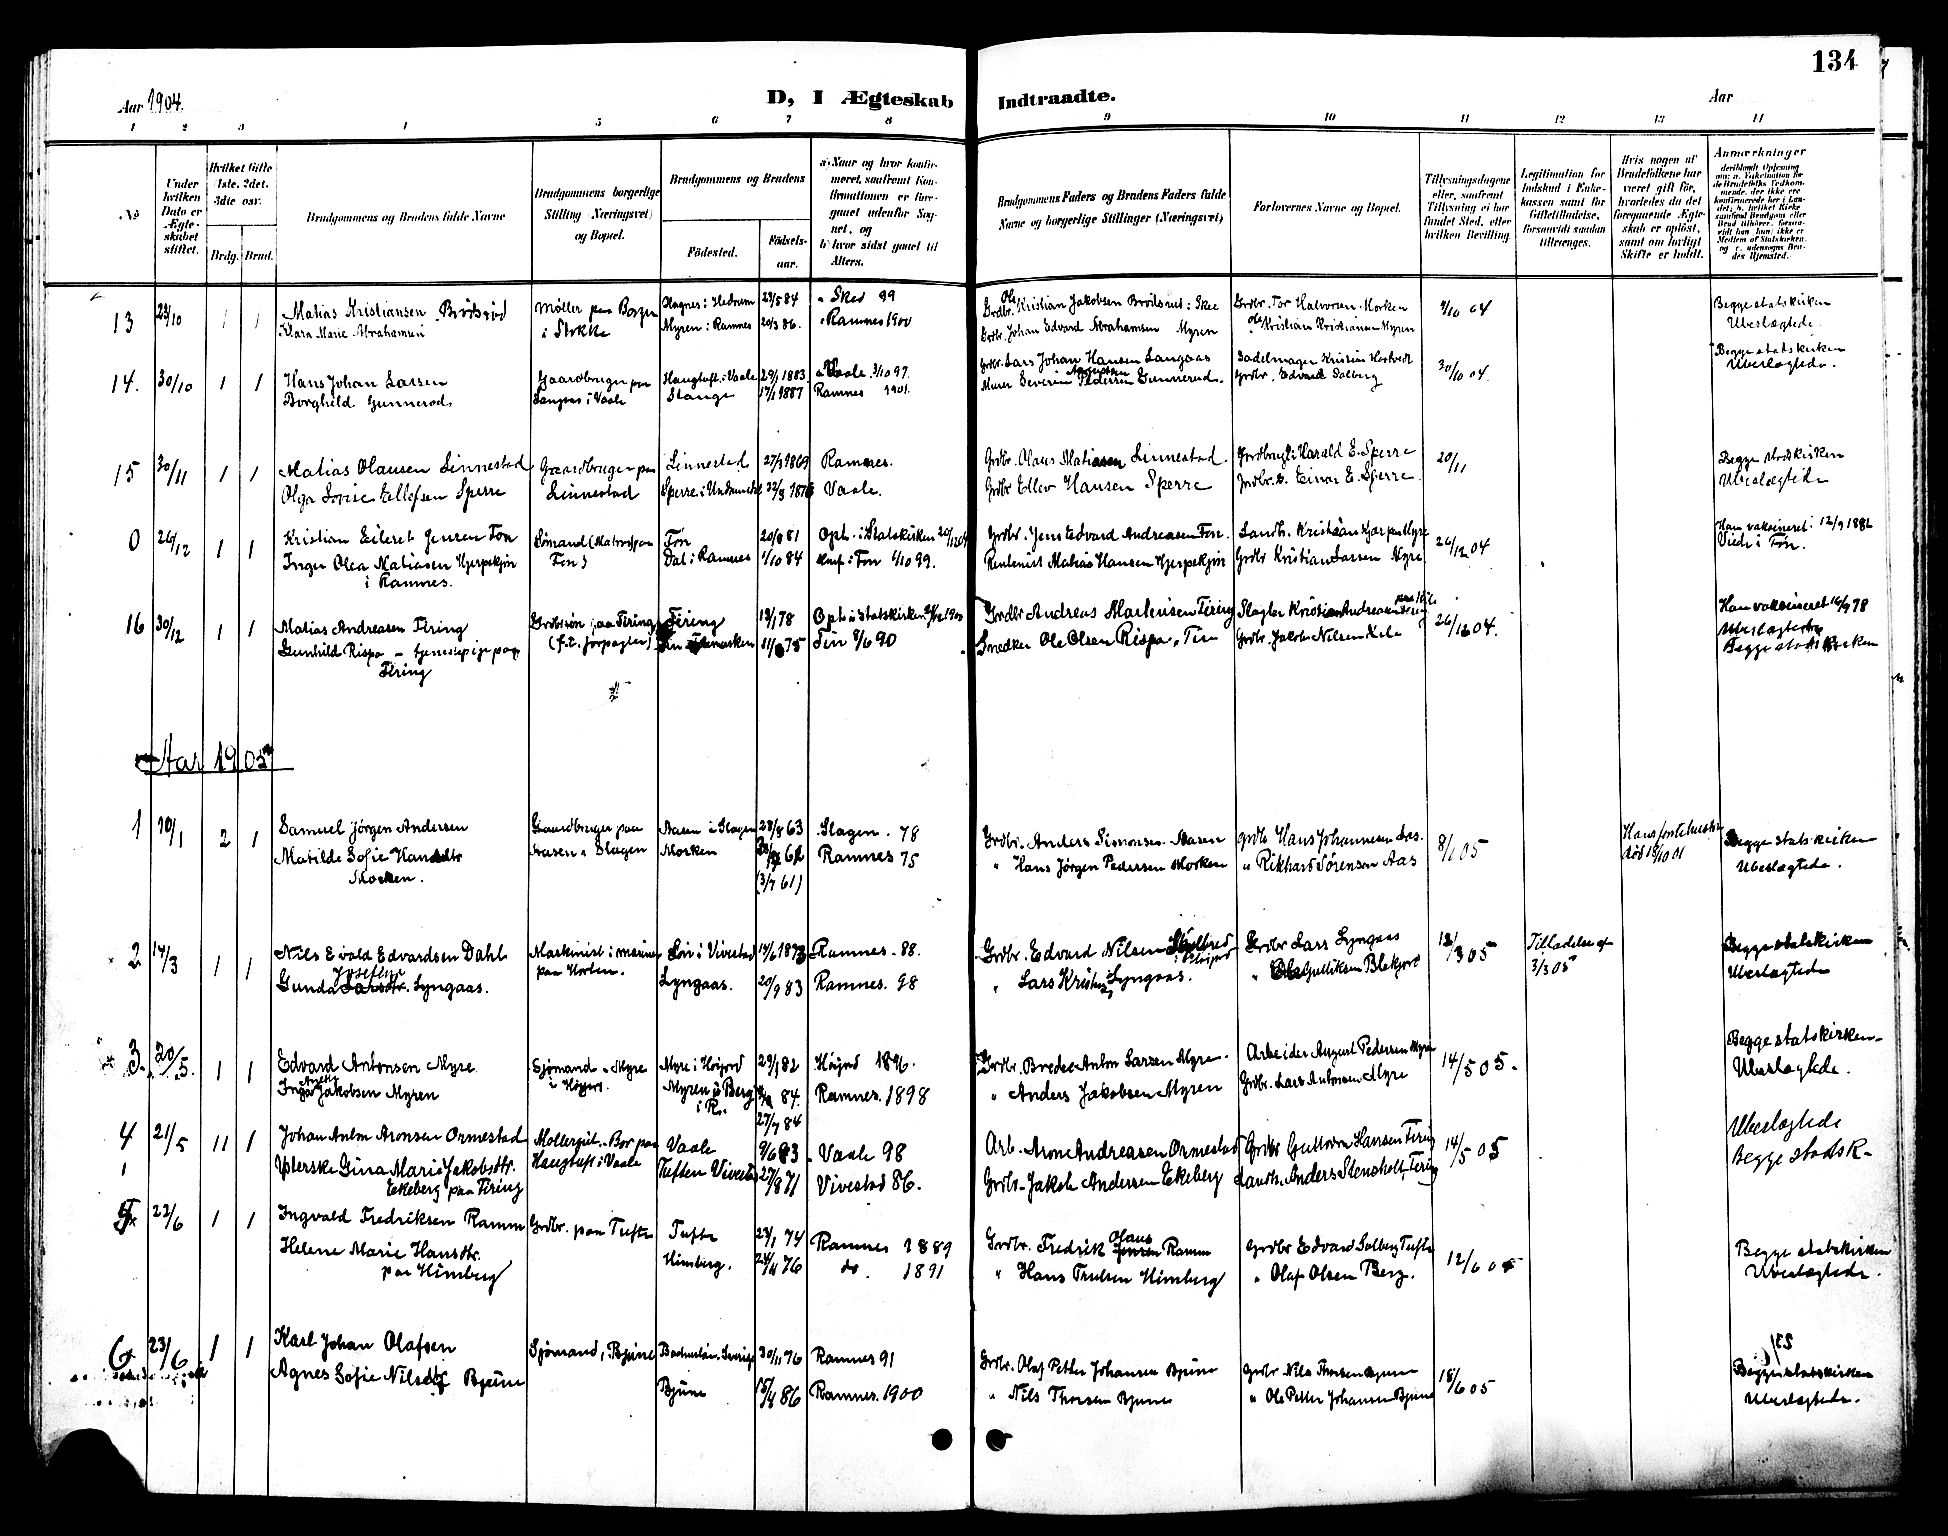 134
Aar 1904.
D, I Ægteskab Indtraadte.
Aar
1 2 3 4 5 6 7 8 9 10 11 12 13 14
No
Under hvilken Dato er Ægteskabet stiftet.
Hvilket Gifte 1ste, 2det, 3die osv.
Brdg. Brud.
Brudgommens og Brudens fulde Navne
Brudgommens borgerlige Stilling (Næringsvei) og Bopæl.
Brudgommens og Brudens
Fødested.
Fødselsaar.
a) Naar og hvor konfirmeret, saafremt Konfirmationen er foregaaet udenfor Sognet, og
b) hvor sidst gaaet til Alters.
Brudgommens Faders og Brudens Faders fulde Navne og borgerlige Stillinger (Næringsvei)
Forlovernes Navne og Bopæl.
Tillysningsdagene eller, saafremt Tillysning ei har fundet Sted, efter hvilken Bevilling
Legitimation for Indskud i Enkekassen samt for Giftetilladelse, forsaavidt saadan tiltrænges.
Hvis nogen af Brudefolkene har været gift før, hvorledes da det foregaaende Ægteskab er opløst, samt om lovligt Skifte er holdt.
Anmærkninger
13 23/10 1 1 Matias Kristiansen Brøtsrød Møller paa Borgen Hagnes i Hedrum 23/5 84 Skee 99 Grdbr. Ole Kristian Jakobsen Brøtsrød i Skee Grdbr. Tor Halvorsen Horken 9/10 04 Begge statskirken
Klara Marie Abrahamsen i Stokke Myren i Ramnes 20/3 86. Ramnes 1900 Grdbr. Johan Edvard Abrahamsen Myren Ole Kristian Kristiansen Myren Ubeslægtede.
14. 30/10 1 1 Hans Johan Larsen Gaardbruger paa Haugtuft i Vaale 29/1 1883 Vaale 3/10 97. Grdbr. Lars Johan Hansen Langaas Sadelmager Kristian Hortvedt 30/10 04. Begge statskirken
Borghild Gunnerød Langaas i Vaale Stange 17/1 1887 Ramnes 1901. Murer Severin Augustsen Pedersen Gunnerud. Grdbr. Edvard Solberg Ubeslægtede.
15 30/11 1 1 Matias Olausen Linnestad Gaardbruger paa Linnestad 27/3 1869 Ramnes. Grdbr. Olaus Matiasen Linnestad. Gardbrug. Harald E. Sperre 20/11 Begge statskirken
Olga Sofie Ellefsen Sperre Linnestad Sperre i Undrumsdal 22/8 1876 Vaale. Grdbr Ellev Hansen Sperre Grdbr. Einar E. Sperre. Ubeslægtede
0 26/12 1 1 Kristian Eilert Jensen Fon Sømand (Matros) paa Fon 20/8 81 Opt. i Statskirken 20/12 04 Grdbr. Jens Edvard Andreasen Fon. Landh. Kristian Hjar paa Myre 26/12 04 Han vaksineret 12/9 1882
Inger Olea Matiasen Hjerpekjøn Fon Dal i Ramnes 1/10 84 Konf i Fon 1/10 99. Rentenist Matias Hansen Hjerpekjøn Grdbr Kristian Larsen Myre Viede i Fon.
i Ramnes.
16 30/12 1 1 Matias Andreasen Firing Grdbrsøn paa Firing Firing 13/1 78 Opt. i Statskirken Grdbr Andreas Martinsen Firing Slagter Kristian Andreasen Firing 26/12 04. Han vaksineret 16/9 78
Gunhild Rispa - tjenestepige paa (f.t. forpagter) 11/8 75 Fin 9/6 90 Snedker Ole Olsen Rispa, Fin Grdbr. Jakob Nilsen Kile Ubeslægtede
Firing Begge statskirken
Aar 1905
1 10/1 2 1 Samuel Jørgen Andersen Gaardbruger paa Aasen i Slagen 28/8 63 Slagen. 78 Grdbr. Anders Simonsen Aasen Grdb Hans Johannesen Aas. 8/1 05 Hans første hustru Begge statskirken
Matilde Sofie Hansdtr Aasen i Slagen Horken 62 Ramnes 75 " Hans Jørgen Pedersen Horken " Rikhard Sørensen Aas død 18/10 01 Ubeslægtede.
Horken. (3/7 61)
2 14/3 1 1 Nils Evald Edvardsen Dahl Maskinist i marinen Søn i Vivestad 14/6 1873 Ramnes. 88. Grdbr. Edvard Nilsen Grdbr Lars Lyngaas 12/3 05 Tilladelse af Begge statskirken
Gunda Josefine Larsdtr. Lyngaas. paa Horten. Lyngaas. 20/9 83 Ramnes. 98 " Lars Kristian Lyngaas. " Ole Gulliksen Blekjord 3/3 05 Ubeslægtede
3. 20/5. 1 1 Edvard Antonsen Myre Sjømand Myre Myre i Høijord 29/1 82 Høijord 1896. Grdbr. Brede Anton Larsen Myre. Arbeider August Pedersen Myre 14/5 05. Begge statskirken
Inga Jakobsen Myren i Høijord. Myren i Berg i R. 84. Ramnes. 1898 " Anders Jakobsen Myren Grdbr. Lars Antonsen Myre Ubeslægtede.
27/7 84
4 21/5 11 1 Johan Anton Aronsen Ormestad Møllergut. Bor paa Vaale 9/6 83 Vaale 98 Arb. Aron Andreasen Ormestad Grdbr Guttorm Hansen Firing 14/5 05 Ubeslægtede
1 Ypterske Gina Marie Jakobsdtr. Haugtuft i Vaale Tuften Vivestad 27/8 71 Vivestad 86. Grdbr. Jakob Andersen Ekeberg Landh. Anders Stensholt, Firing Begge statsk-
Ekeberg paa Firing
5 22/6 1 1 Ingvald Fredriksen Ramm Grdbr. paa Tufte Tufte 23/1 74 Ramnes 1889 Grdbr. Fredrik Olaus Jensen Ramm Grdbr Edvard Solberg Tufte 12/6 05 Begge statskirken
Helene Marie Hansdtr. Himberg. 24/4 76 do. 1891 " Hans Trulsen Himberg " Olaf Olsen Berg. Ubeslægtede.
paa Himberg
6 23/6 1 1 Karl Johan Olafsen Sjømand, Bjune Sverige 30/11 76 Ramnes 91 Grdbr. Olaf Petter Johansen Bjune Grdbr Nils Thorsen Bjune 18/6 05 Begge statskirken
Agnes Sofie Nilsdtr Bjune Bjune 15/4 86 Ramnes. 1900 " Nils Thorsen Bjune " Ole Petter Johansen Bjune Ubeslægtede.